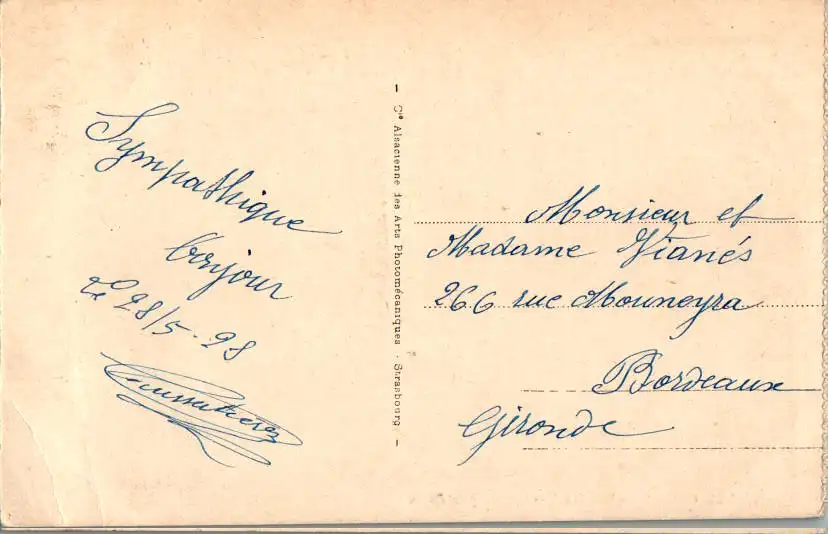 Sympathique
bonjour
Le 28/5-28
- Cie Alsacienne des Arts Photomécaniques - Strasbourg. -
Monsieur et
Madame Vianés
266 rue Mouneyra
Bordeaux
Gironde